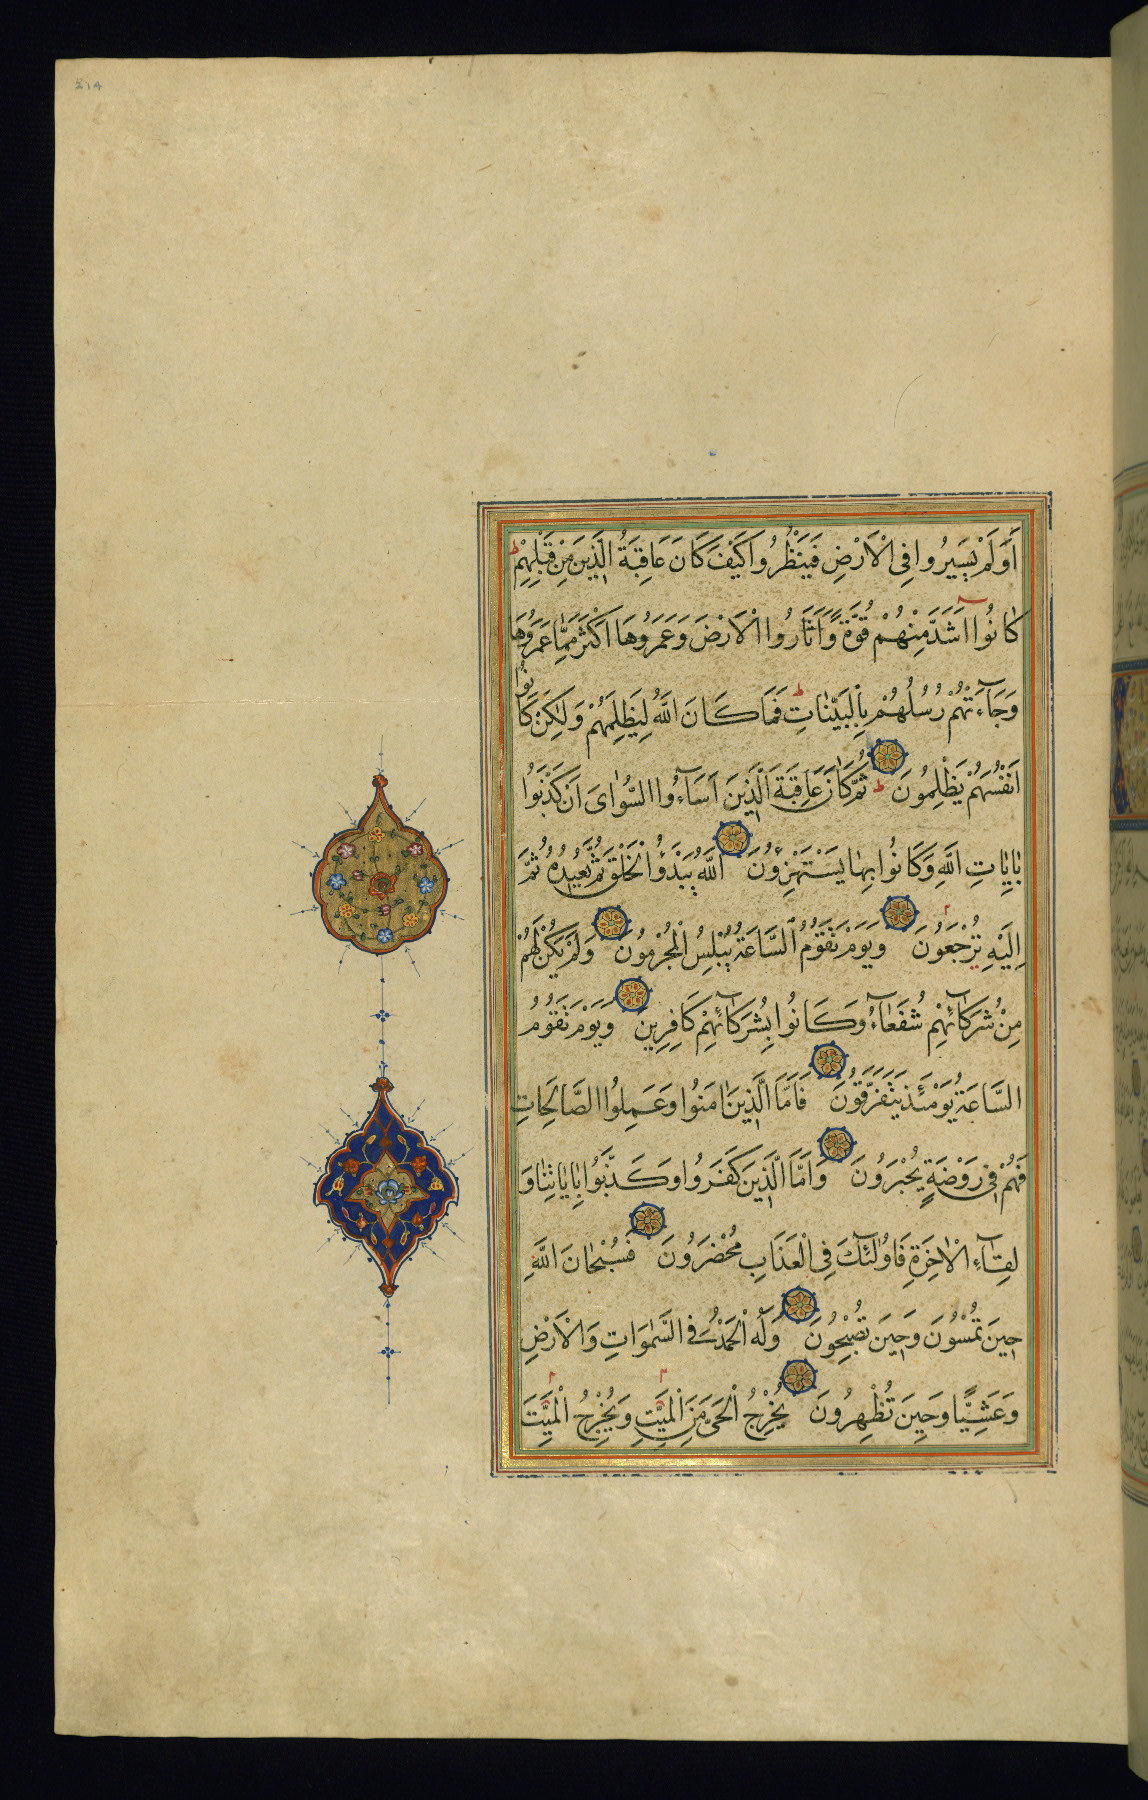 ٢١٤
أَوَلَمْ يَسِيرُوا فِى الْاَرْضِ فَيَنْظُرُوا كَيْفَ كَانَ عَاقِبَةُ الَّذِينَ مِنْ قَبْلِهِمْ ط
كَانُوا اَشَدَّ مِنْهُمْ قُوَّةً وَاَثَارُوا الْاَرْضَ وَعَمَرُوهَا اَكْثَرَ مِمَّا عَمَرُوهَا
وَجَآءَتْهُمْ رُسُلُهُمْ بِالْبَيِّنَاتِ ط فَمَا كَانَ اللَّهُ لِيَظْلِمَهُمْ وَلٰكِنْ كَانُوا
اَنْفُسَهُمْ يَظْلِمُونَ ط ثُمَّ كَانَ عَاقِبَةَ الَّذِينَ اَسَآءُوا السُّوٓاٰى اَنْ كَذَّبُوا
بِاٰيَاتِ اللَّهِ وَكَانُوا بِهَا يَسْتَهْزِءُونَ اَللَّهُ يَبْدَؤُا الْخَلْقَ ثُمَّ يُعِيدُهُ ثُمَّ
اِلَيْهِ تُرْجَعُونَ وَيَوْمَ تَقُومُ السَّاعَةُ يُبْلِسُ الْمُجْرِمُونَ وَلَمْ يَكُنْ لَهُمْ
مِنْ شُرَكَآئِهِمْ شُفَعَآءُ وَكَانُوا بِشُرَكَآئِهِمْ كَافِرِينَ وَيَوْمَ تَقُومُ
السَّاعَةُ يَوْمَئِذٍ يَتَفَرَّقُونَ فَاَمَّا الَّذِينَ اٰمَنُوا وَعَمِلُوا الصَّالِحَاتِ
فَهُمْ فِى رَوْضَةٍ يُحْبَرُونَ وَاَمَّا الَّذِينَ كَفَرُوا وَكَذَّبُوا بِاٰيَاتِنَا وَ
لِقَآءِ الْاٰخِرَةِ فَاُولٰٓئِكَ فِى الْعَذَابِ مُحْضَرُونَ فَسُبْحَانَ اللَّهِ
حِينَ تُمْسُونَ وَحِينَ تُصْبِحُونَ وَلَهُ الْحَمْدُ فِى السَّمٰوَاتِ وَالْاَرْضِ
وَعَشِيًّا وَحِينَ تُظْهِرُونَ يُخْرِجُ الْحَىَّ مِنَ الْمَيِّتِ وَيُخْرِجُ الْمَيِّتَ